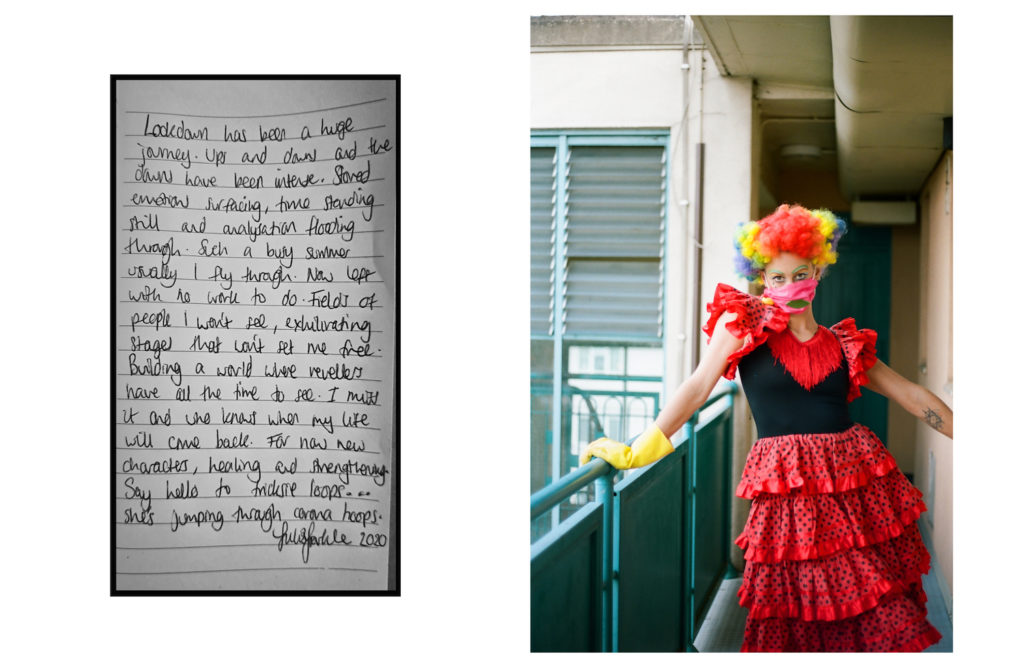 Lockdown has been a huge
journey. Ups and downs and the
downs have been intense. Stored
emotion surfacing, time standing
still and analysation flooding
through. Such a busy summer
usually I fly through. Now left
with no work to do. Fields of
people I won't see, exhilirating
stages that won't set me free.
Building a world where revellers
have all the time to see. I miss
it and who knows when my life
will come back. For now new
characters, healing and strengthening.
Say hello to loops...
she's jumping through corona hoops.
2020